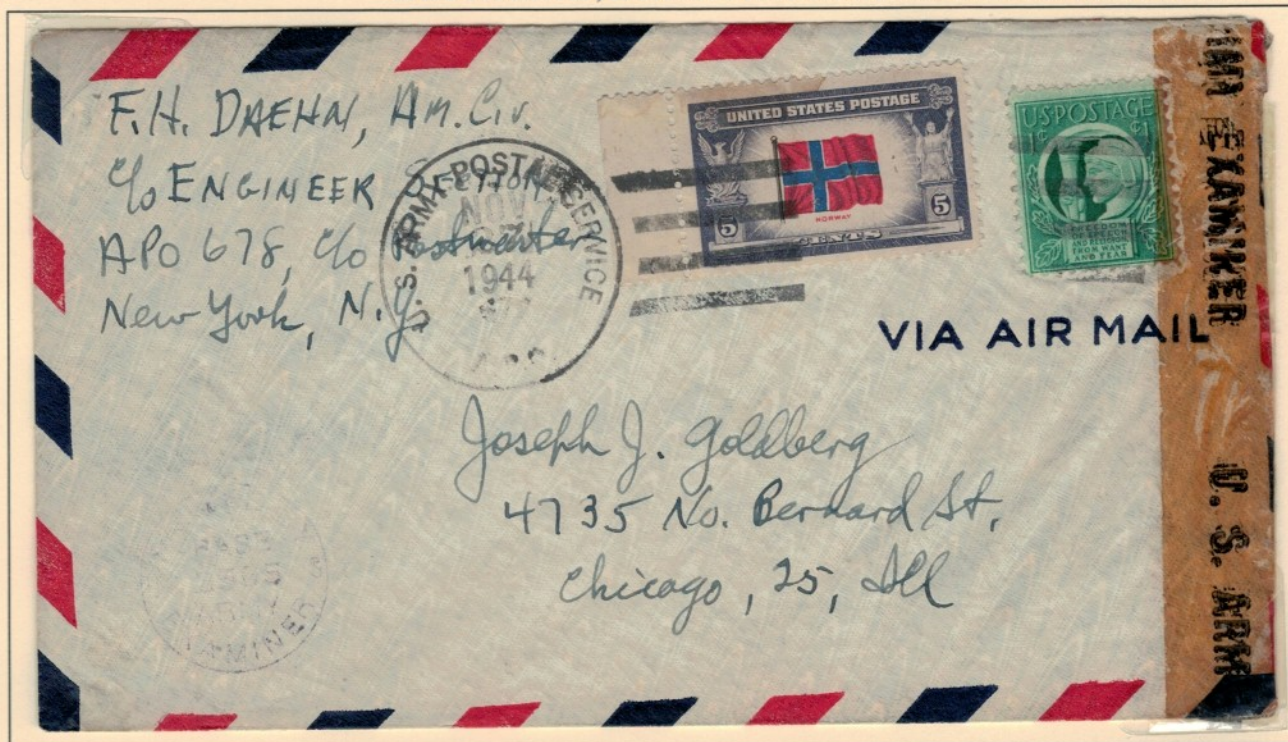 F.H. DAEHN, Am. Civ.
c/o ENGINEER SECTION
APO 678, c/o Postmaster
New York, N.Y.
U.S. ARMY POSTAL SERVICE
NOV
1944
A.P.O.
UNITED STATES POSTAGE
NORWAY
5 5
CENTS
US POSTAGE
1¢ ¢1
FREEDOM
OF SPEECH
AND RELIGION
FROM WANT
AND FEAR
VIA AIR MAIL
Joseph J. Goldberg
4735 No. Bernard St.
Chicago, 25, Ill
ARMY
EXAMINER
EXAMINER U. S. ARM